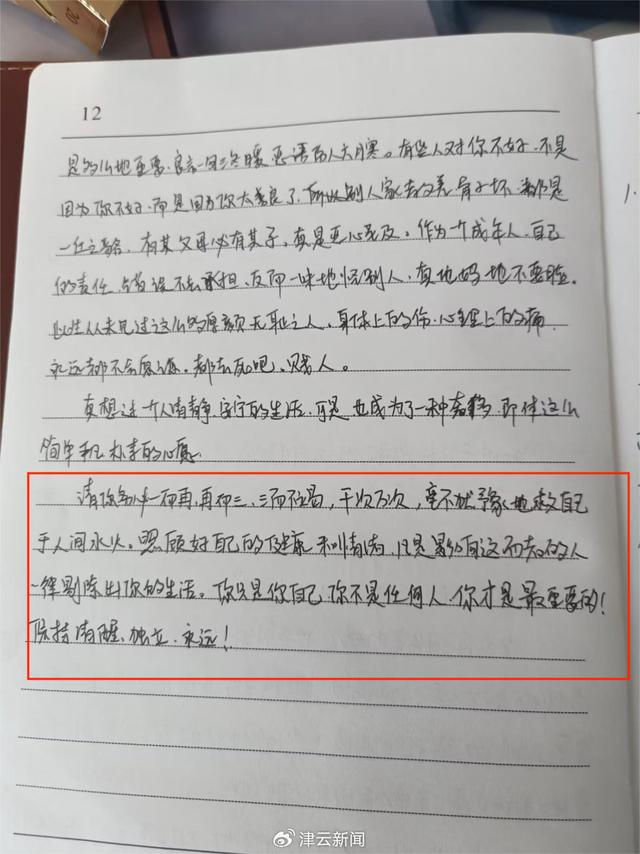 12
是多么地重要,良言一句三冬暖恶语伤人六月寒。有些人对你不好,不是
因为你不好,而是因为你太善良了,所以别人家
一丘之貉,有其父母必有其子,真是恶心至及。作为一个成年人,自己
的责任,错误不去承担,反而一味地怪别人,真他妈地不要脸。
此生从未见过这么的厚颜无耻之人,身体上的伤,心理上的痛,
永远都不会原谅,都去死吧,贱人。
真想过一个人清静,安宁的生活,可是也成为了一种奢侈,即使这么
简单平凡朴素的心愿
请你务必一而再,再而三,三而不竭,千次万次,毫不犹豫地救自己
于人间水火。照顾好自己的健康和情绪,凡是因这而去的人
一律剔除出你的生活。你只是你自己,你不是任何人,你才是最重要的!
保持清醒,独立,永远!
津云新闻